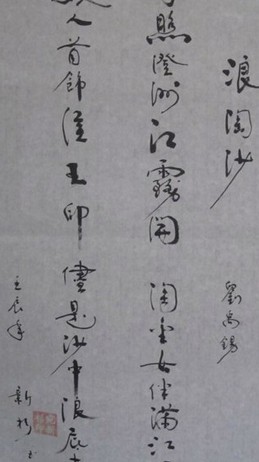 浪淘沙
劉禹錫
照澄洲江霧開 淘金女伴滿江
人首飾侯王印 儘是沙中浪底
壬辰年
新